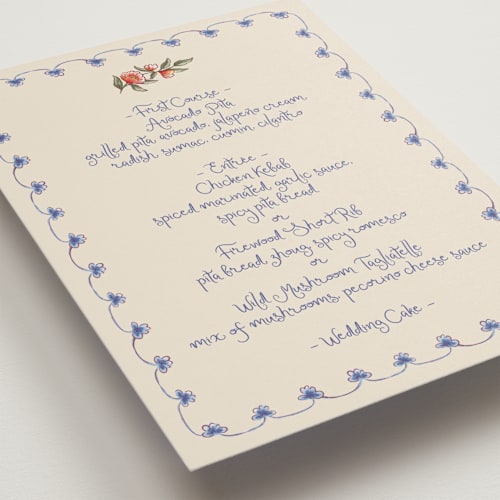 - First Course -
Avocado Pita
grilled pita, avocado, jalapeño cream
radish, sumac, cumin, cilantro
- Entree -
Chicken Kebab
spiced marinated, garlic sauce,
spicy pita bread
or
Firewood Short Rib
pita bread, zhoug, spicy romesco
or
Wild Mushroom Tagliatelle
mix of mushrooms, pecorino cheese sauce
- Wedding Cake -